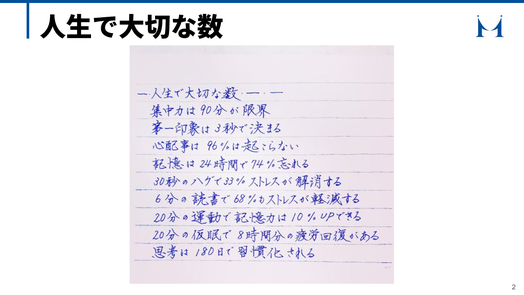 人生で大切な数
一 人生で大切な数 一 一
集中力は90分が限界
第一印象は3秒で決まる
心配事は96%は起こらない
記憶は24時間で74%忘れる
30秒のハグで33%ストレスが解消する
6分の読書で68%のストレスが軽減する
20分の運動で記憶力は10%UPできる
20分の仮眠で8時間分の疲労回復がある
思考は180日で習慣化される
2